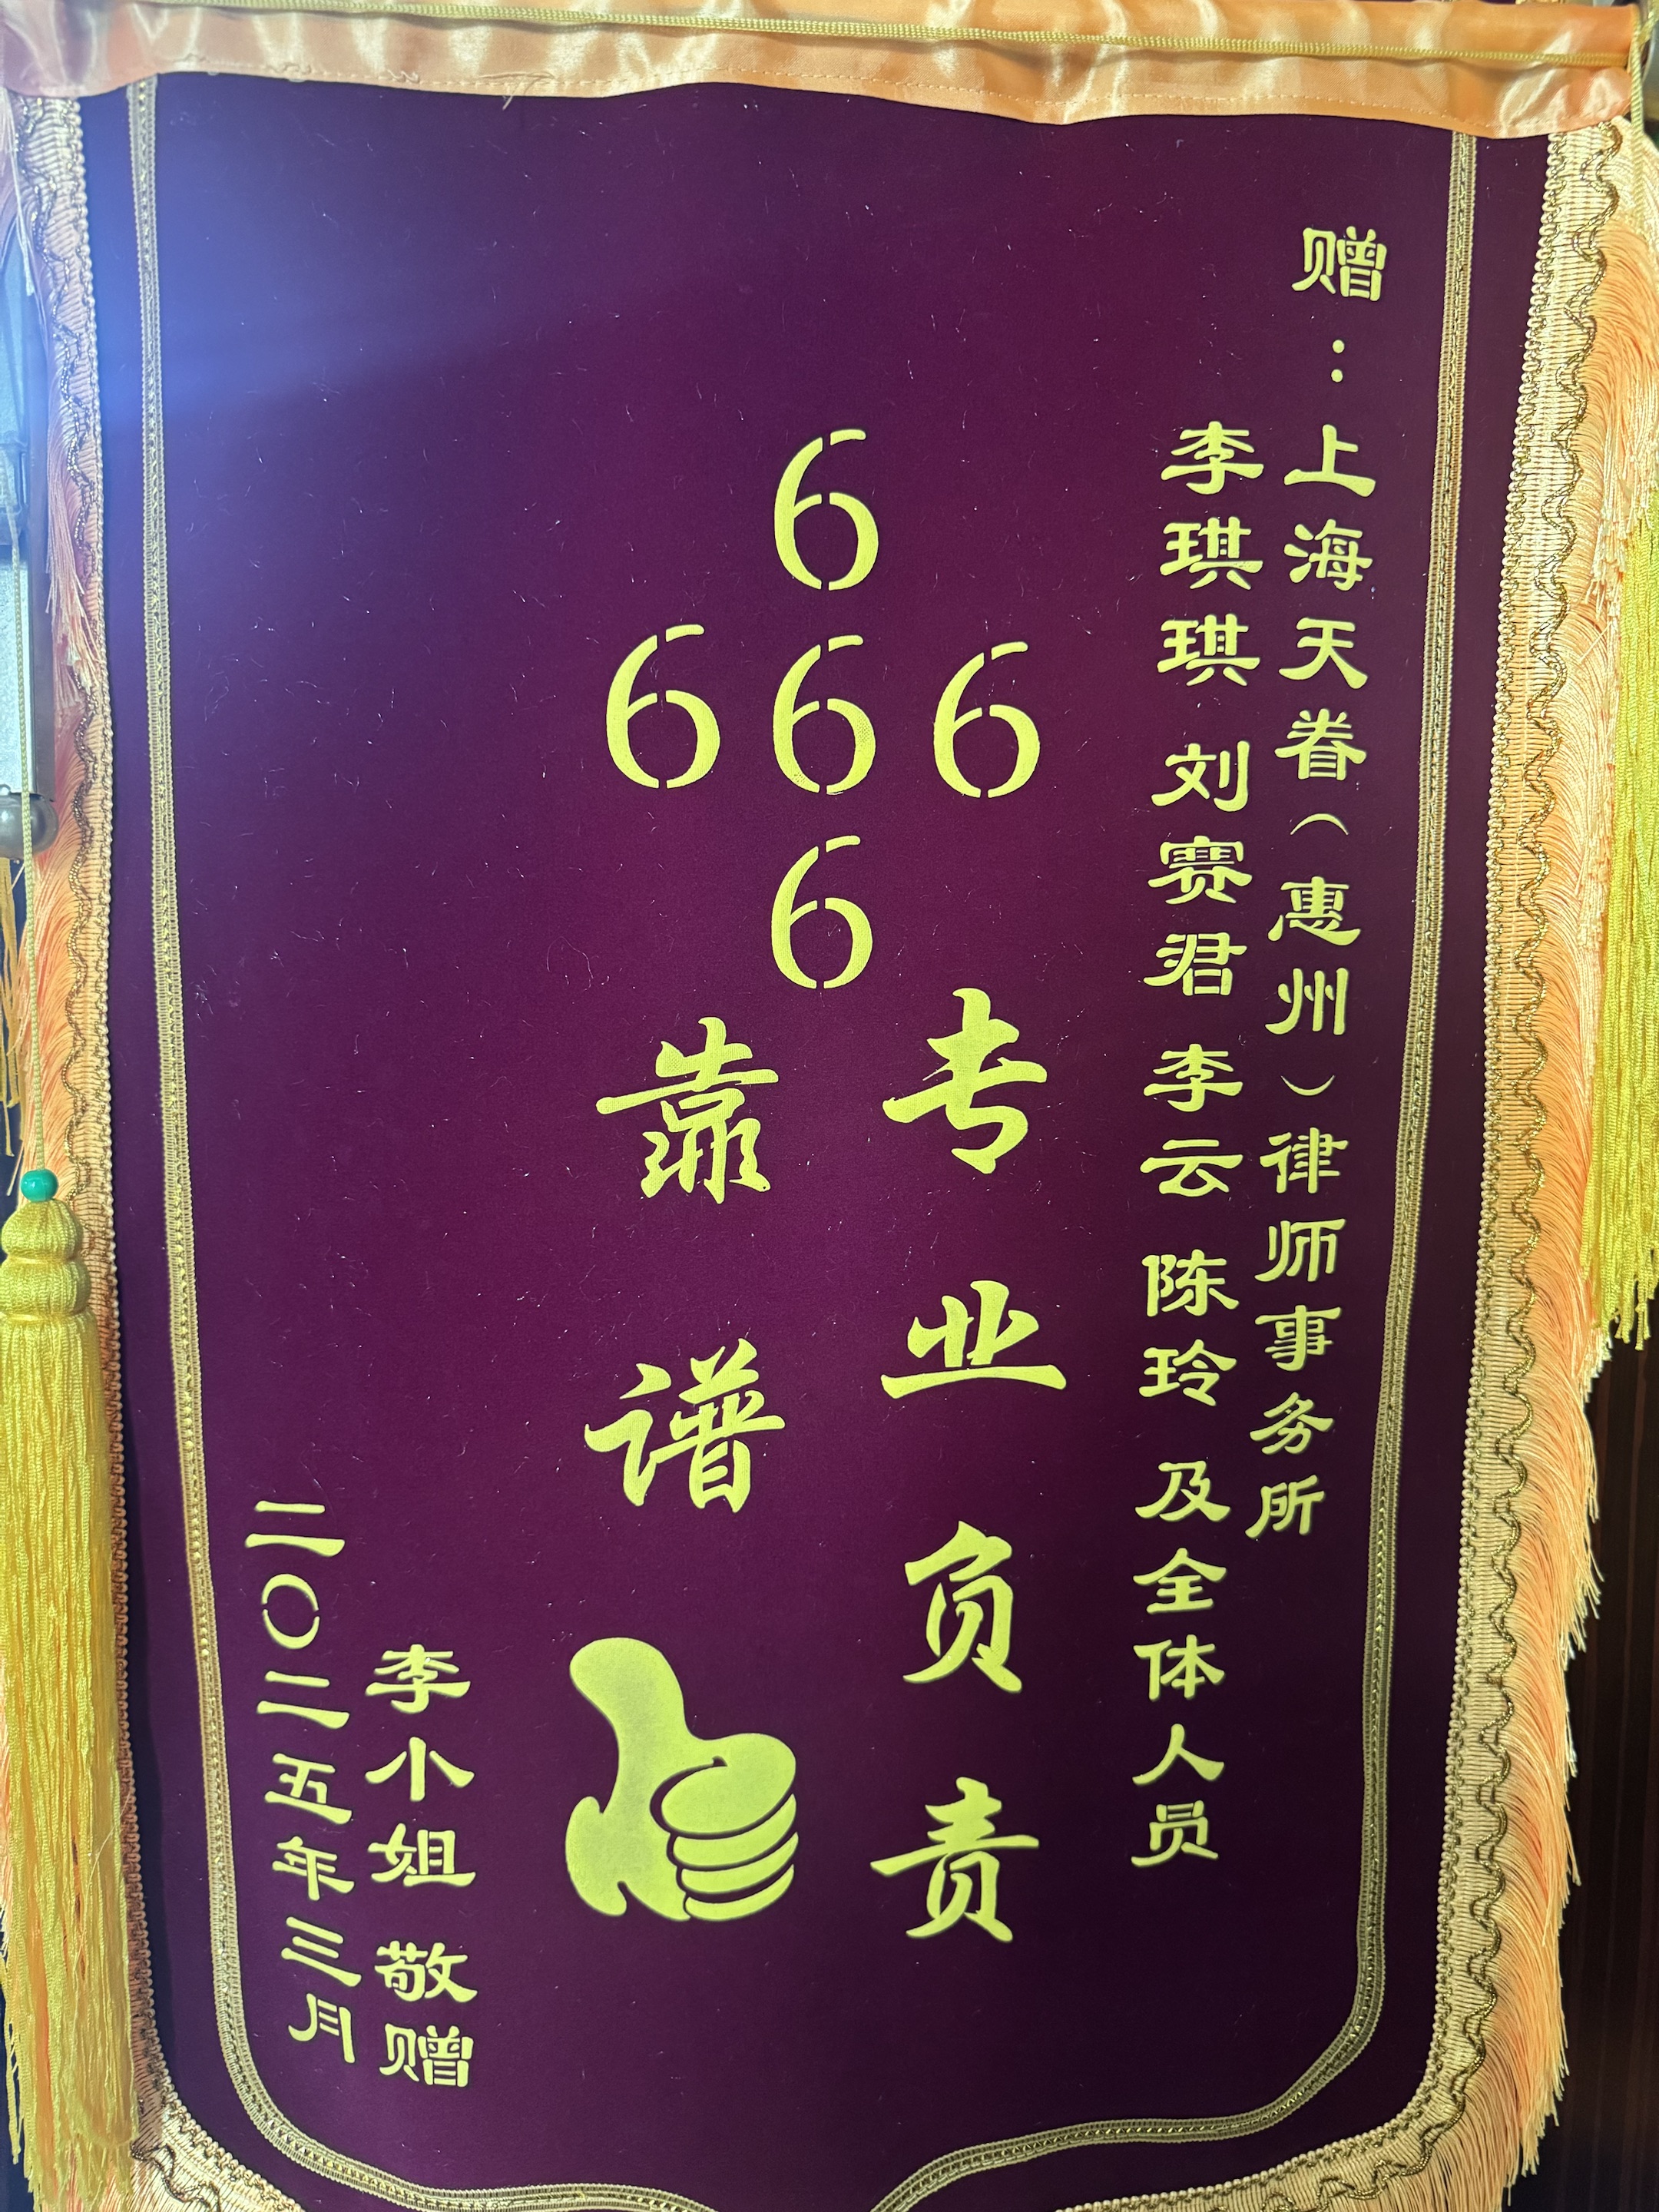 赠：上海天眷（惠州）律师事务所
李琪琪 刘赛君 李云 陈玲 及全体人员
6
6 6 6
6
专业负责
靠谱
李小姐 敬赠
二〇二五年三月